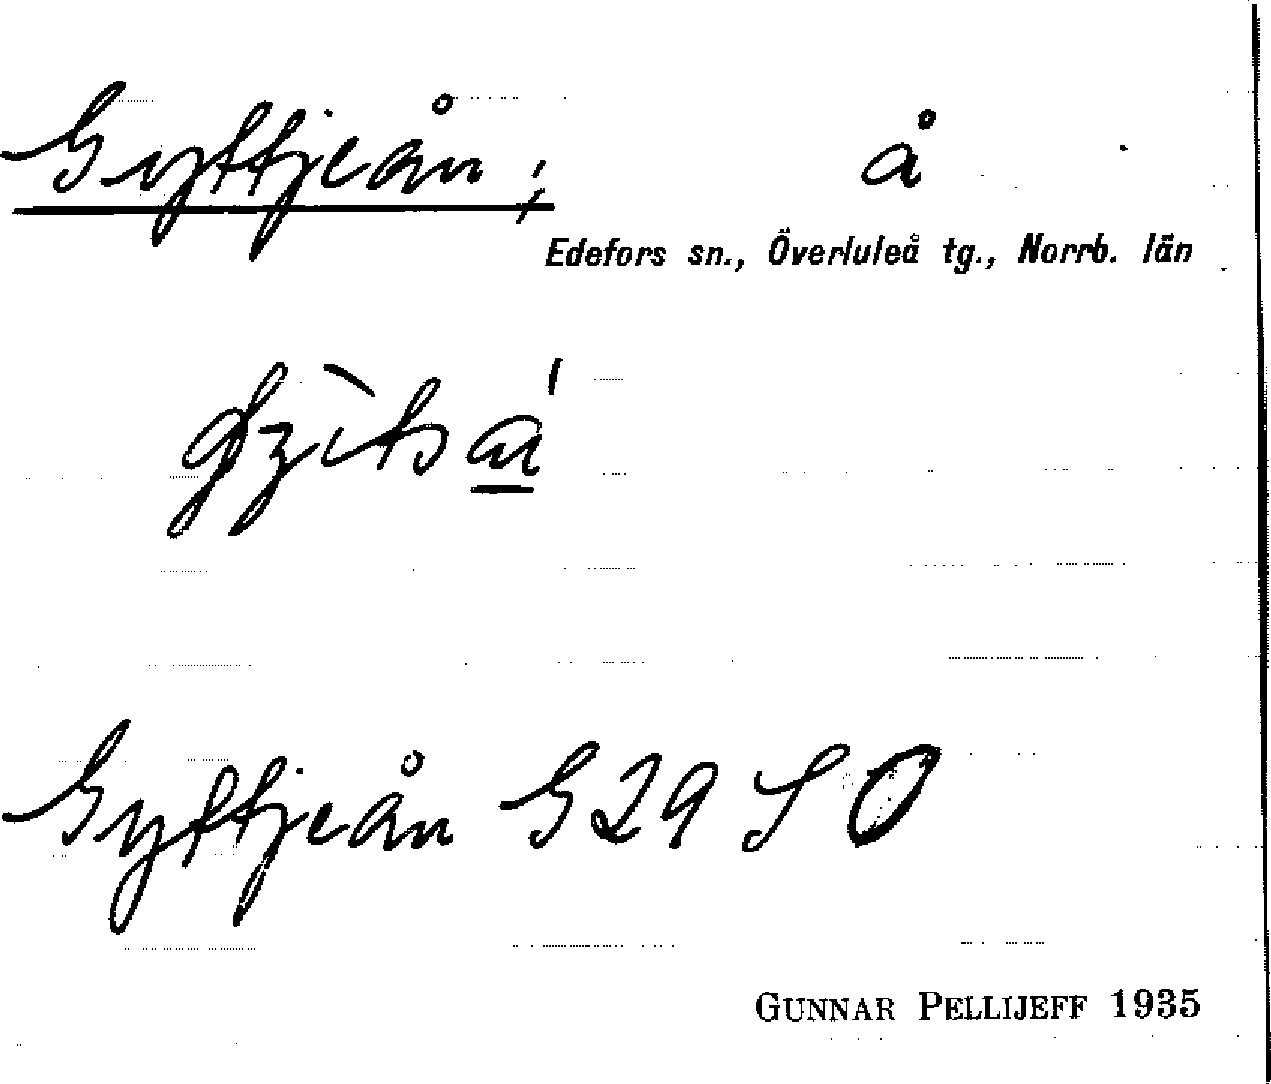 Gyttjeån; å
Edefors sn., Överluleå tg., Norrb. län
Gyttjeån G29 SO
GUNNAR PELLIJEFF 1935